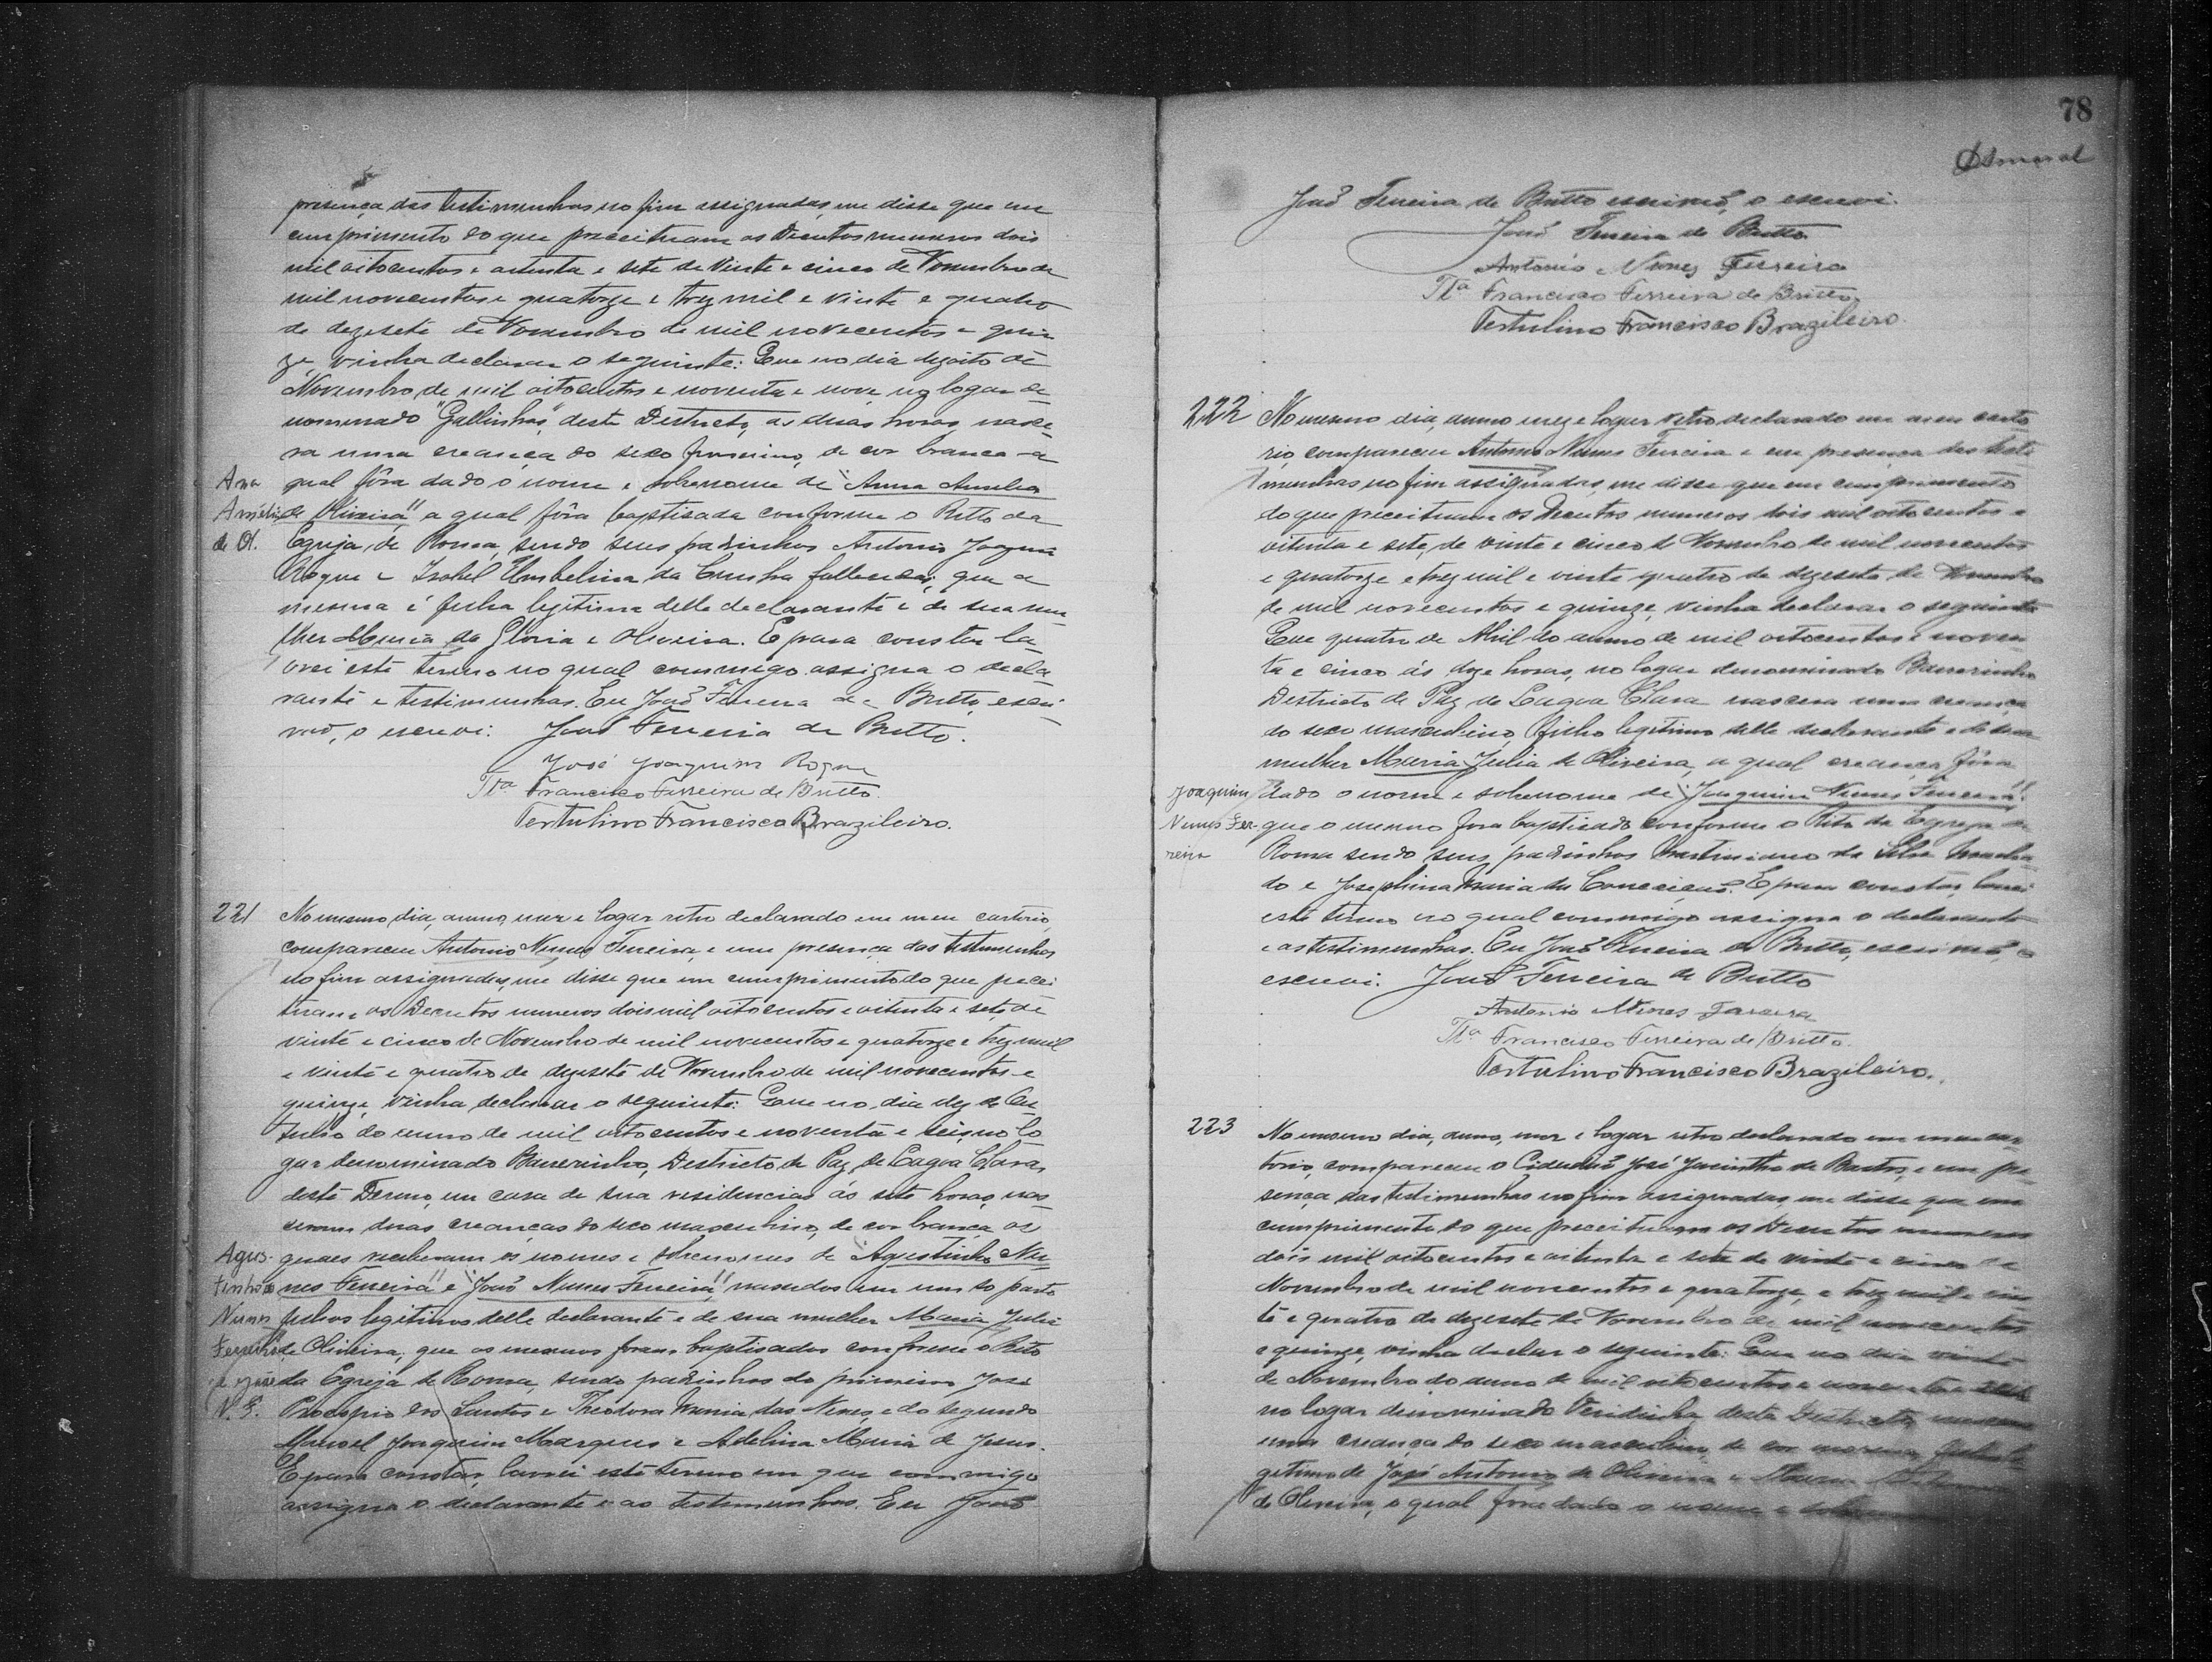 presença das testimunhas no fim assignadas, me disse que em
cumprimento do que preceituam os Decretos numeros dois
mil oitocentos e oitenta e sete de vinte e cinco de Novembro de
mil novecentos e quatorze e trez mil e vinte e quatro
de dezesete de Novembro de mil novecentos e quin
ze, vinha declarar o seguinte: Que no dia dezoito de
Novembro de mil oitocentos e noventa e nove, no logar de
nominado "Gallinhas", deste Destricto, as duas horas, nasce-
ra uma creança do sexo feminino, de cor branca a
Ana
qual fôra dado o nome e sobrenome de "Anna Amelia
Amelia
de Oliveira" a qual fôra baptisada conforme o Ritto da
de O.
Egreja de Roma, sendo seus padrinhos Antonio Joaquim
Roque e Isabel Umbelina da Cunha, que a
mesma é filha legitima delle declarante e de sua mu
lher Maria da Gloria e Oliveira. E para constar la-
vrei este termo no qual commigo assigna o decla
rante e testimunhas. Eu João Ferreira de Britto, escri-
vão, o escrevi: João Ferreira de Britto.
José Joaquim Roque
Tta Francisco Ferreira de Britto.
Tertulino Francisco Brazileiro.
221
No mesmo dia, anno, mez e logar retro declarado em meu cartorio,
compareceu Antonio Nunes Ferreira, e em presença das testimunhas
no fim assignadas, me disse que em cumprimento do que precei
tuam os Decretos numeros dois mil oitocentos e oitenta e sete, de
vinte e cinco de Novembro de mil novecentos e quatorze e trez mil
e vinte e quatro de dezesete de Novembro de mil novecentos e
quinze, vinha declarar o seguinte: Que no dia dez de Ou
tubro do anno de mil oitocentos e noventa e seis, no lo
gar denominado Barrerinho, Destricto de Paz de Lagoa Clara,
deste Termo, em casa de sua residencia, ás sete horas, nas
ceram duas creanças do sexo masculino, de cor branca, os
Agos-
quaes receberam os nomes e sobrenomes de "Agostinho Nu
tinho
nes Ferreira" e "João Nunes Ferreira", nascidos em um só parto
Nunes
filhos legitimos delle declarante e de sua mulher Maria Julia
Ferreira
de Oliveira, que os mesmos foram baptisados conforme o Rito
e João
da Egreja de Roma, sendo padrinhos do primeiro José
N. F.
Procopio dos Santos e Theodora Maria das Neves, e do segundo
Manoel Joaquim Marques e Adelina Maria de Jesus.
E para constar, lavrei este termo em que commigo
assigna o declarante e as testemunhas. Eu João
78
Amaral
João Ferreira de Britto escrivão, o escrevi.
João Ferreira de Britto.
Antonio Nunes Ferreira
Tta Francisco Ferreira de Britto.
Tertulino Francisco Brazileiro.
222
No mesmo dia, anno mez e logar retro declarado em meu carto
rio, compareceu Antonio Nunes Ferreira e em presença das testi
munhas no fim assignadas, me disse que em cumprimento
do que preceituam os Decretos numeros dois mil oitocentos e
oitenta e sete, de vinte e cinco de Novembro de mil novecentos
e quatorze e trez mil e vinte quatro de dezesete de Novembro
de mil novecentos e quinze, vinha declarar o seguinte
Que quatro de Abril do anno de mil oitocentos e noven
ta e cinco ás doze horas, no logar denominado Barrerinho
Destricto de Paz de Lagoa Clara nascera uma creança
do sexo masculino, filho legitimo delle declarante e de sua
mulher Maria Julia de Oliveira, a qual creança fôra
Joaquim
dado o nome e sobrenome de "Joaquim Nunes Ferreira".
Nunes Fer-
que o mesmo fora baptisado conforme o Rito da Egreja de
reira
Roma sendo seus padrinhos da Silva
do e Josephina Maria da Conceição. E para constar, lavrei
este termo no qual commigo assigna o declarante
e as testimunhas. Eu João Ferreira de Britto, escrivão, o
escrevi. João Ferreira de Britto
Antonio Nunes Ferreira
Tta Francisco Ferreira de Britto.
Tertulino Francisco Brazileiro.
223
No mesmo dia, anno, mez e logar retro declarado em meu car
torio, compareceu o Cidadão José Jacintho de Bastos, e em pre
sença das testimunhas no fim assignadas, me disse que em
cumprimento do que preceituam os Decretos numeros
dois mil oitocentos e oitenta e sete de vinte e cinco de
Novembro de mil novecentos e quatorze, e trez mil e vin
te e quatro de dezesete de Novembro de mil novecentos
e quinze, vinha declarar o seguinte: Que no dia vinte
de Novembro do anno de mil oitocentos e noventa e
no logar denominado deste Destricto, nascera
uma creança do sexo masculino, de cor morena, filho le
gitimo de José Antonio de Oliveira e
de Oliveira, a qual fôra dado o nome e